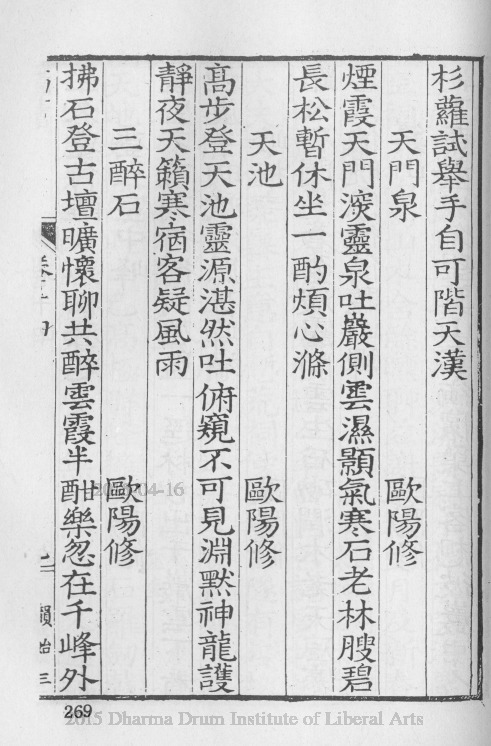 杉蘿試舉手自可階天漢
天門泉 歐陽修
煙霞天門深靈泉吐巖側雲濕顥氣寒石老林腴碧
長松暫休坐一酌煩心滌
天池 歐陽修
高步登天池靈源湛然吐俯窺不可見淵默神龍護
靜夜天籟寒宿客疑風雨
三醉石 歐陽修
拂石登古壇曠懷聊共醉雲霞半酣樂忽在千峰外
269
2015-04-16
2015 Dharma Drum Institute of Liberal Arts